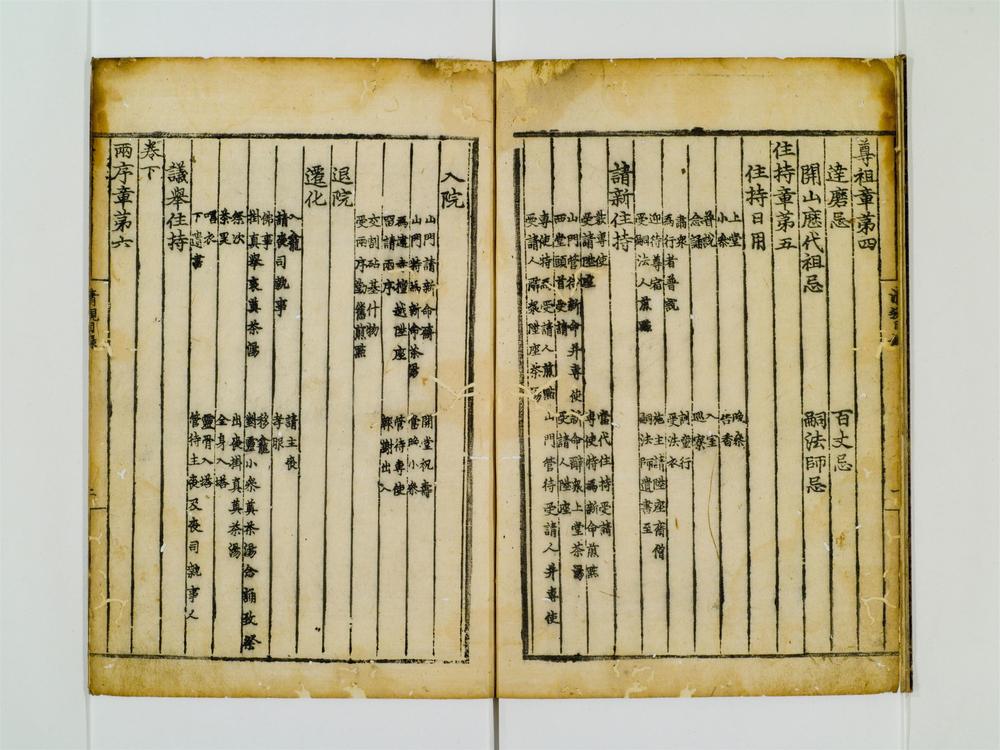 尊祖章第四
達磨忌 百丈忌
開山歷代祖忌 嗣法師忌
住持章第五
住持日用
上堂 晚參
小參 告香
普說 入室
念誦 巡寮
肅衆 訓童行
爲行者普說 受法衣
迎待尊宿 施主請陞座齋僧
受嗣法人煎點 嗣法師遺書至
請新住持
發專使 當代住持受請
受請陞座 專使特爲新命煎點
山門管待新命并專使 新命辭衆上堂茶湯
西堂頭首受請 受請人陞座
專使特爲受請人煎點 山門管待受請人并專使
受請人辭衆陞座茶湯
入院
山門請新命齋 開堂祝壽
山門特爲新命茶湯 當晚小參
爲建寺檀越陞座 管待專使
留請兩序 報謝出入
交割砧基什物
受兩序勤舊煎點
退院
遷化
入龕 請主喪
請喪司執事 孝服
佛事 移龕
掛真舉哀奠茶湯 對靈小參奠茶湯念誦致祭
祭次 出喪掛真奠茶湯
茶毘 全身入塔
唱衣 靈骨入塔
下遺書 管待主喪及喪司執事人
議舉住持
卷下
兩序章第六
清規目錄